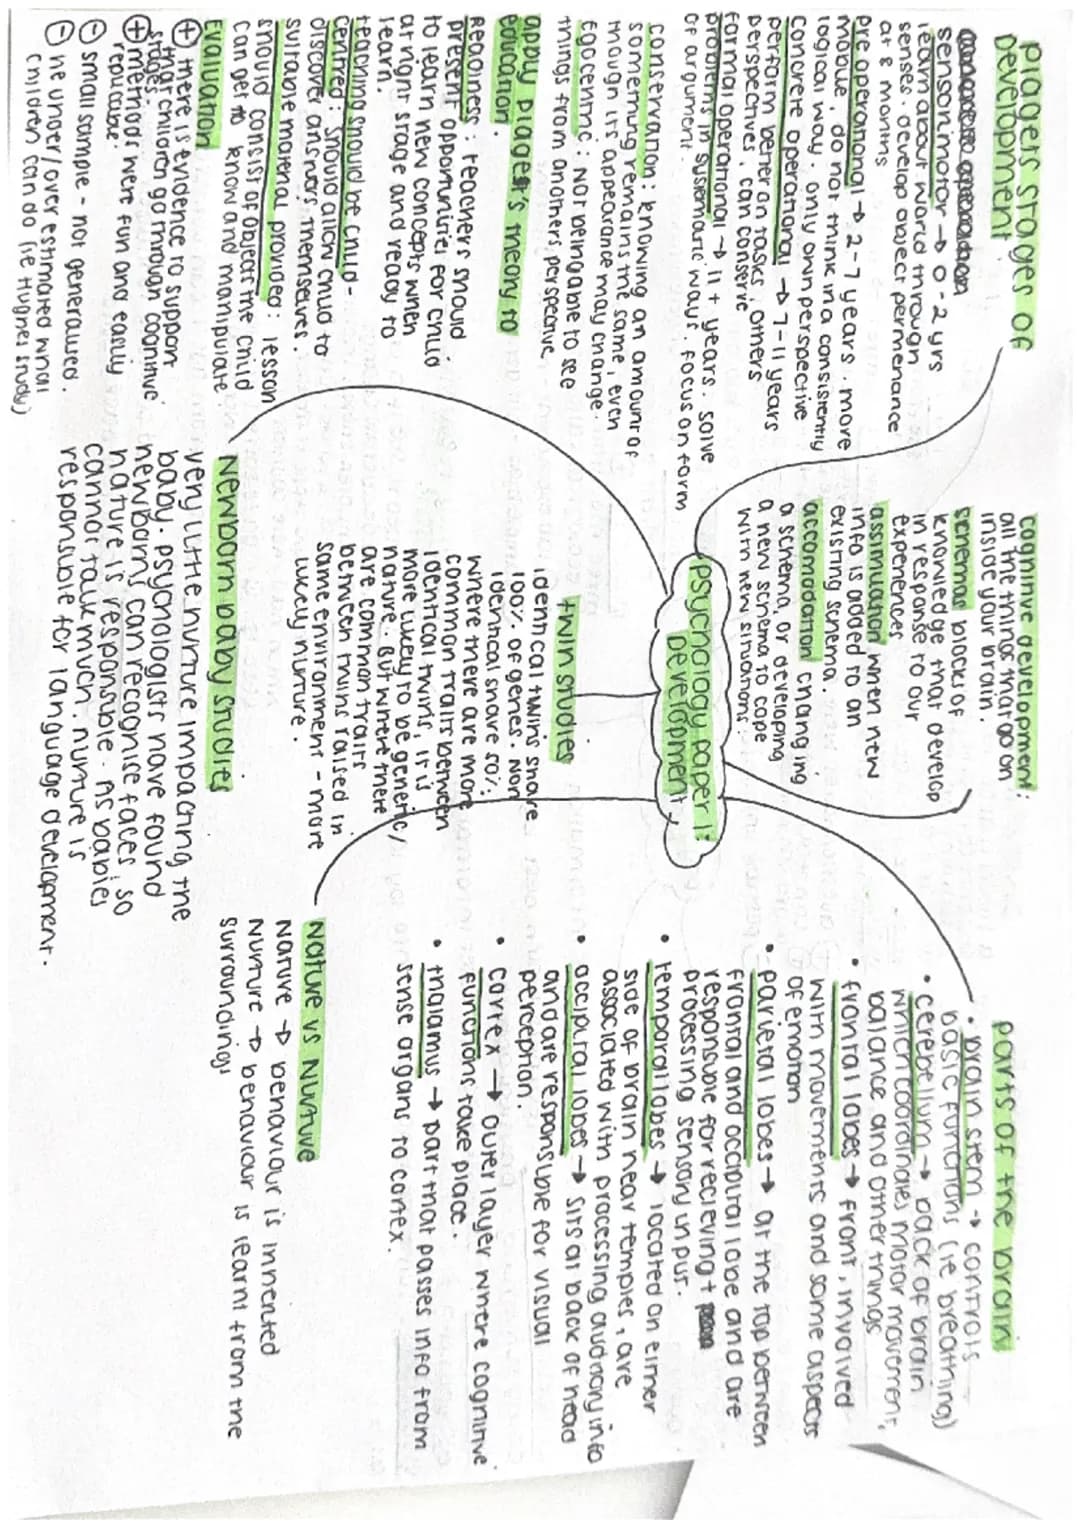 piagets stages of
development
sensorimotor → 0-2 yrs
learn about world through
senses. develop object permenance
at 8 months
pre operational → 2-7 years. more
mobile, do not think in a consistently
logical way. only own perspective
concrete operational → 7-11 years
perform better on tasks, others
perspectives, can conserve
formal operational → 11+ years. solve
problems in systematic ways. focus on form
of argument.
conservation: knowing an amount of
something remains the same, even
though it's appearance may change.
egocentric: not being able to see
things from anothers perspective
apply piaget's theory to
education.
Readiness: teachers should
present opportunities for child
to learn new concepts when
at right stage and ready to
learn.
teaching should be child-
centred: should allow child to
discover answers themselves.
suitable material provided: lesson
should consist of objects the child
can get to know and manipulate
Evaluation
⊕ there is evidence to support
that children go through cognitive
stages.
⊕ methods were fun and easily
replicable.
⊖ small sample - not generalised.
⊖ he under/over estimated what
children can do (ie Hughes study)
cognitive development:
all the things that go on
inside your brain.
schemas blocks of
knowledge that develop
in response to our
experiences
assimilation when new
info is added to an
existing schema.
accomodation changing
a schema, or developing
a new schema to cope
with new situations
psychology paper 1:
Development
twin studies
identical twins share
100% of genes. Non
identical share 50%.
where there are more
common traits between
identical twins, it is
more likely to be genetic/
nature. But where there
are common traits
between twins raised in
same environment - more
likely nurture.
Newborn baby studies
very little nurture impacting the
baby. psychologists have found
newborns can recognise faces, so
nature is responsible. As babies
cannot talk much. nurture is
responsible for language development.
parts of the brain
• brain stem → controls
basic functions (ie breathing)
• cerebellum → back of brain
which coordinates motor movement,
balance and other things
• frontal lobes → front, involved
with movements and some aspects
of emotion
• parietal lobes → at the top between
frontal and occipital lobe and are
responsible for recieving +
processing sensory input.
• temporal lobes → located on either
side of brain near temples, are
associated with processing auditory info
• occipital lobes → sits at back of head
and are responsible for visual
perception.
• cortex → outer layer where cognitive
functions take place.
• thalamus → part that passes info from
sense organs to cortex.
Nature vs Nurture
Nature → behaviour is inherited
Nurture → behaviour is learnt from the
surroundings